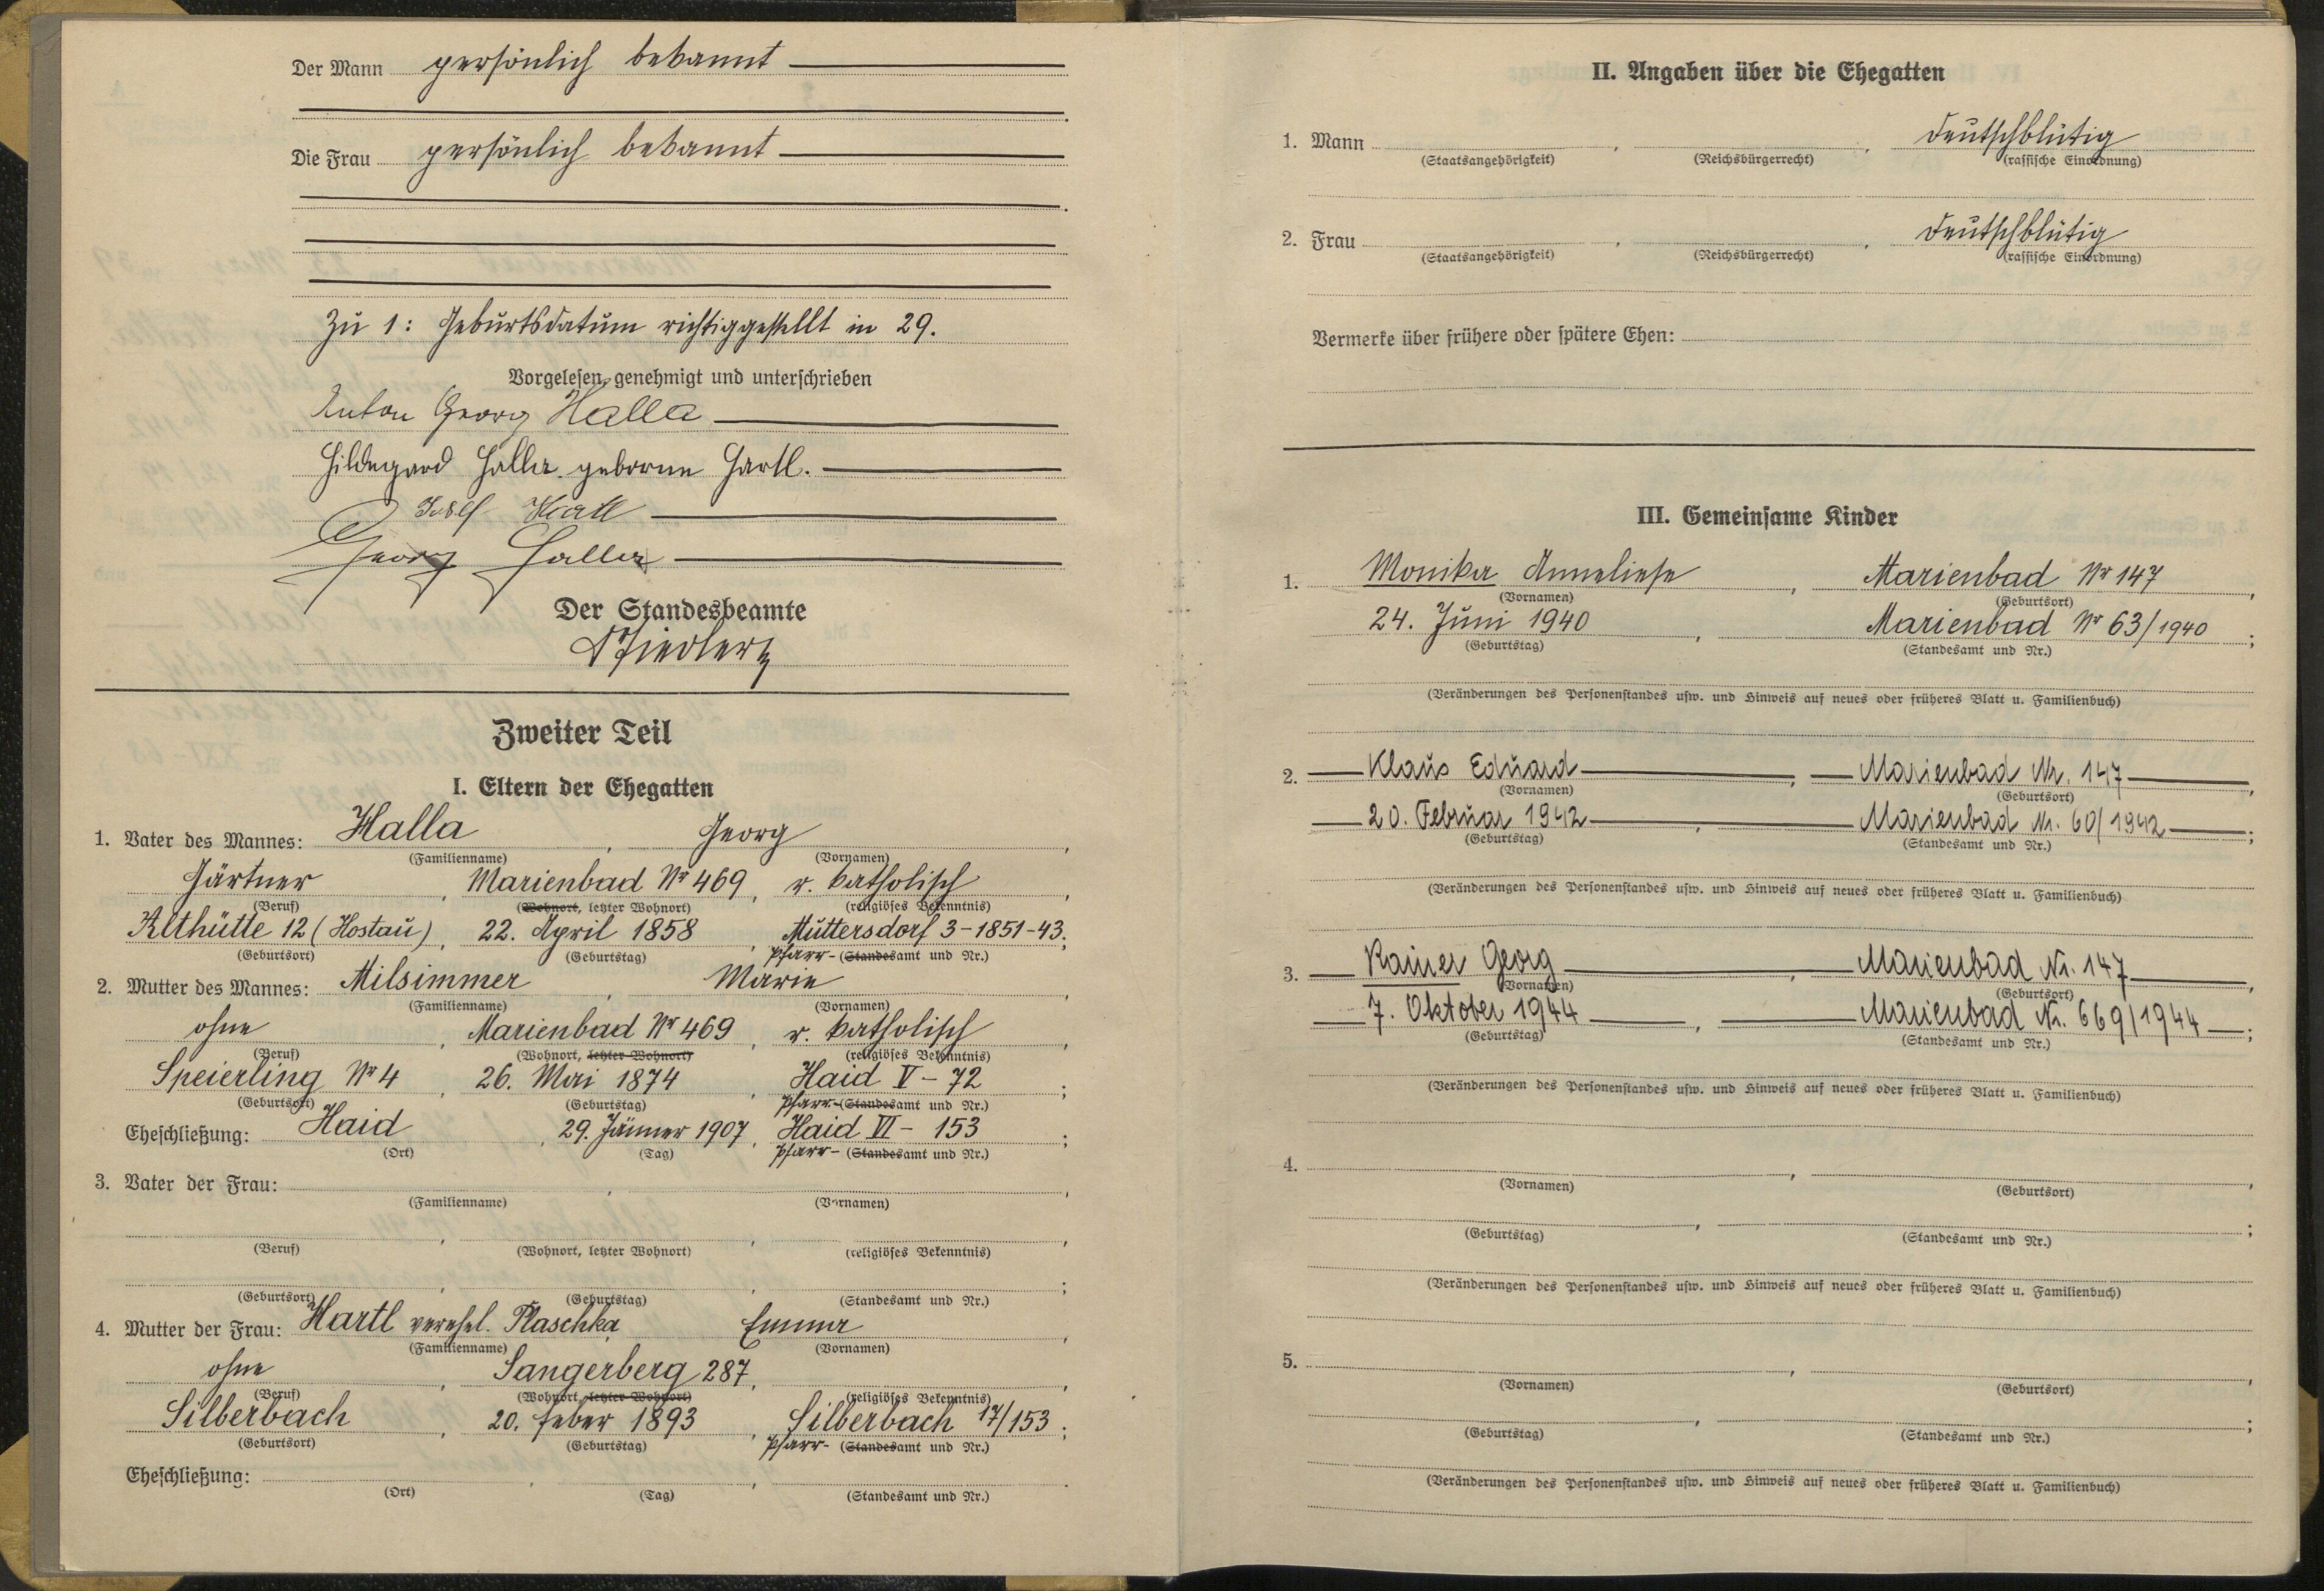 Der Mann persönlich bekannt
Die Frau persönlich bekannt
Zu 1: Geburtsdatum richtiggestellt in 29.
Vorgelesen, genehmigt und unterschrieben
Anton Georg Halla
Hildegard Halla geborene Hartl.
Georg Halla
Der Standesbeamte
Zweiter Teil
I. Eltern der Ehegatten
1. Vater des Mannes: Halla, Georg,
(Familienname) (Vornamen)
Gärtner, Marienbad Nr 469, r. katholisch,
(Beruf) (Wohnort, letzter Wohnort) (religiöses Bekenntnis)
Althütte 12 (Hostau), 22. April 1858, Muttersdorf 3-1851-43;
(Geburtsort) (Geburtstag) Pfarr- (Standesamt und Nr.)
2. Mutter des Mannes: Milsimmer, Marie,
(Familienname) (Vornamen)
ohne, Marienbad Nr 469, r. katholisch,
(Beruf) (Wohnort, letzter Wohnort) (religiöses Bekenntnis)
Speierling Nr 4, 26. Mai 1874, Haid V - 72;
(Geburtsort) (Geburtstag) Pfarr- (Standesamt und Nr.)
Eheschließung: Haid, 29. Jänner 1907, Haid VI - 153;
(Ort) (Tag) Pfarr- (Standesamt und Nr.)
3. Vater der Frau:
(Familienname) (Vornamen)
(Beruf) (Wohnort, letzter Wohnort) (religiöses Bekenntnis)
(Geburtsort) (Geburtstag) (Standesamt und Nr.)
4. Mutter der Frau: Hartl verehel. Plaschka Emma,
(Familienname) (Vornamen)
ohne, Sangerberg 287,
(Beruf) (Wohnort, letzter Wohnort) (religiöses Bekenntnis)
Silberbach, 20. Feber 1893, Silberbach 17/153;
(Geburtsort) (Geburtstag) Pfarr- (Standesamt und Nr.)
Eheschließung:
(Ort) (Tag) (Standesamt und Nr.)
II. Angaben über die Ehegatten
1. Mann, , deutschblütig
(Staatsangehörigkeit) (Reichsbürgerrecht) (rassische Einordnung)
2. Frau, , deutschblütig
(Staatsangehörigkeit) (Reichsbürgerrecht) (rassische Einordnung)
Vermerke über frühere oder spätere Ehen:
III. Gemeinsame Kinder
1. Monika Anneliese, Marienbad Nr 147,
(Vornamen) (Geburtsort)
24. Juni 1940, Marienbad Nr 63/1940;
(Geburtstag) (Standesamt und Nr.)
(Veränderungen des Personenstandes usw. und Hinweis auf neues oder früheres Blatt u. Familienbuch)
2. Klaus Eduard, Marienbad Nr. 147,
(Vornamen) (Geburtsort)
20. Februar 1942, Marienbad Nr. 60/1942;
(Geburtstag) (Standesamt und Nr.)
(Veränderungen des Personenstandes usw. und Hinweis auf neues oder früheres Blatt u. Familienbuch)
3. Rainer Georg, Marienbad Nr. 147,
(Vornamen) (Geburtsort)
7. Oktober 1944, Marienbad Nr. 669/1944;
(Geburtstag) (Standesamt und Nr.)
(Veränderungen des Personenstandes usw. und Hinweis auf neues oder früheres Blatt u. Familienbuch)
4.
(Vornamen) (Geburtsort)
(Geburtstag) (Standesamt und Nr.)
(Veränderungen des Personenstandes usw. und Hinweis auf neues oder früheres Blatt u. Familienbuch)
5.
(Vornamen) (Geburtsort)
(Geburtstag) (Standesamt und Nr.)
(Veränderungen des Personenstandes usw. und Hinweis auf neues oder früheres Blatt u. Familienbuch)